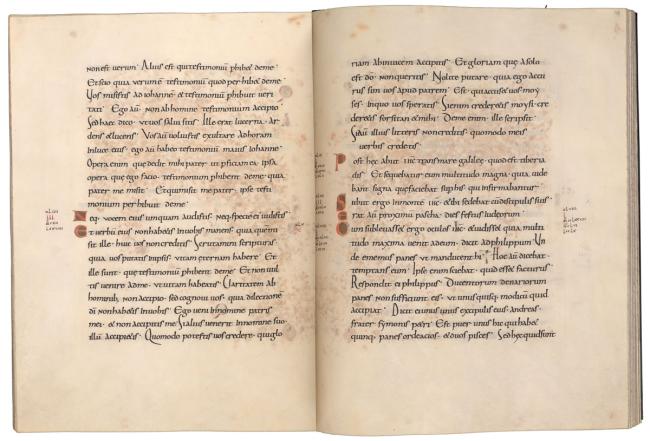 non est uerum · Alius est qui testimoniū phibet deme ·
Et scio quia uerum ē testimoniū quod perhibet deme ·
Vos misistis ad iohannē & testimoniū phibuit ueri
tati · Ego aū non ab homine testimonium accipio ·
Sed haec dico · ut uos salui sitis · Ille erat lucerna · ar
dens & lucens · Vos aū uoluistis exultare ad horam
in luce eius · ego aū habeo testimoniū maius iohanne ·
Opera enim que dedit mihi pater ut pficiam ea · ipsa
opera que ego facio · testimonium phibent deme · quia
pater me misit · Et qui misit me pater · ipse testi
monium perhibuit deme ·
Neq; uocem eius umquam audistis · neq; specie ei uidistis ·
Et uerbū eius non habetis in uobis manens quia quem mi
sit ille · huic uos non creditis · Scrutamini scripturas
quia uos putatis in ipsis · uitam eternam habere · Et
ille sunt · que testimoniū phibent deme · Et non uul
tis uenire ad me · ut uitam habeatis · Claritatem ab
hominib; non accipio · sed cognoui uos · quia dilectionē
dī non habetis in uobis · Ego ueni in nomine patris
mei · & non accipitis me · Si alius uenerit in nomine suo ·
illū accipietis · Quomodo potestis uos credere · qui glo
riam ab inuicem accipitis · Et gloriam que a solo
est dō · non queritis · Nolite putare · quia ego accu
saturus sim uos apud patrem · Est qui accuset uos moy
ses · in quo uos speratis · Si enim crederetis moysi · cre
deretis forsitan & mihi · De me enim ille scripsit ·
Si aū illius litteris non creditis · quomodo meis
uerbis credetis ·
Post hec abiit ihc trans mare galilee · quod est tiberia
dis · Et sequebatur eum multitudo magna · quia uide
bant signa que faciebat sup his qui infirmabantur ·
Subiit ergo in montē ihc · & ibi sedebat cū discipulis suis ·
Erat aū proximū pascha · dies festus iudeorum ·
Cum subleuasset ergo oculos ihc · & uidisset quia multi
tudo maxima uenit ad eum · dicit ad philippum · Un
de ememus panes ut manducent hi · Hoc aū dicebat ·
temptans eum · Ipse enim sciebat · quid esset facturus ·
Respondit ei philippus · Ducentorum denariorum
panes non sufficiunt eis · ut unusquisq; modicū quid
accipiat · Dicit ei unus ex discipulis eius · andreas ·
frater symonis petri · Est puer unus hic qui habet
quinq; panes ordeacios · & duos pisces · Sed hec quid sunt